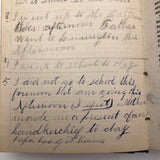 I went up to Mr
this afternoon Father
went to Leamington this
Afternoon
4 I went to school to day
5 I did not go to school this
forenoon but am going this
Afternoon
made me a present of one
handkerchief to day
Papa has got home